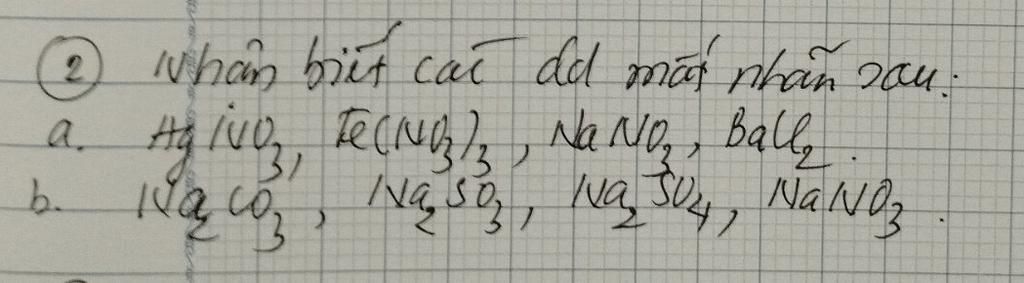 ② Nhận biết các dd mất nhãn sau:
a. AgNO₃, Fe(NO₃)₃, NaNO₃, BaCl₂.
b. Na₂CO₃, Na₂SO₃, Na₂SO₄, NaNO₃.